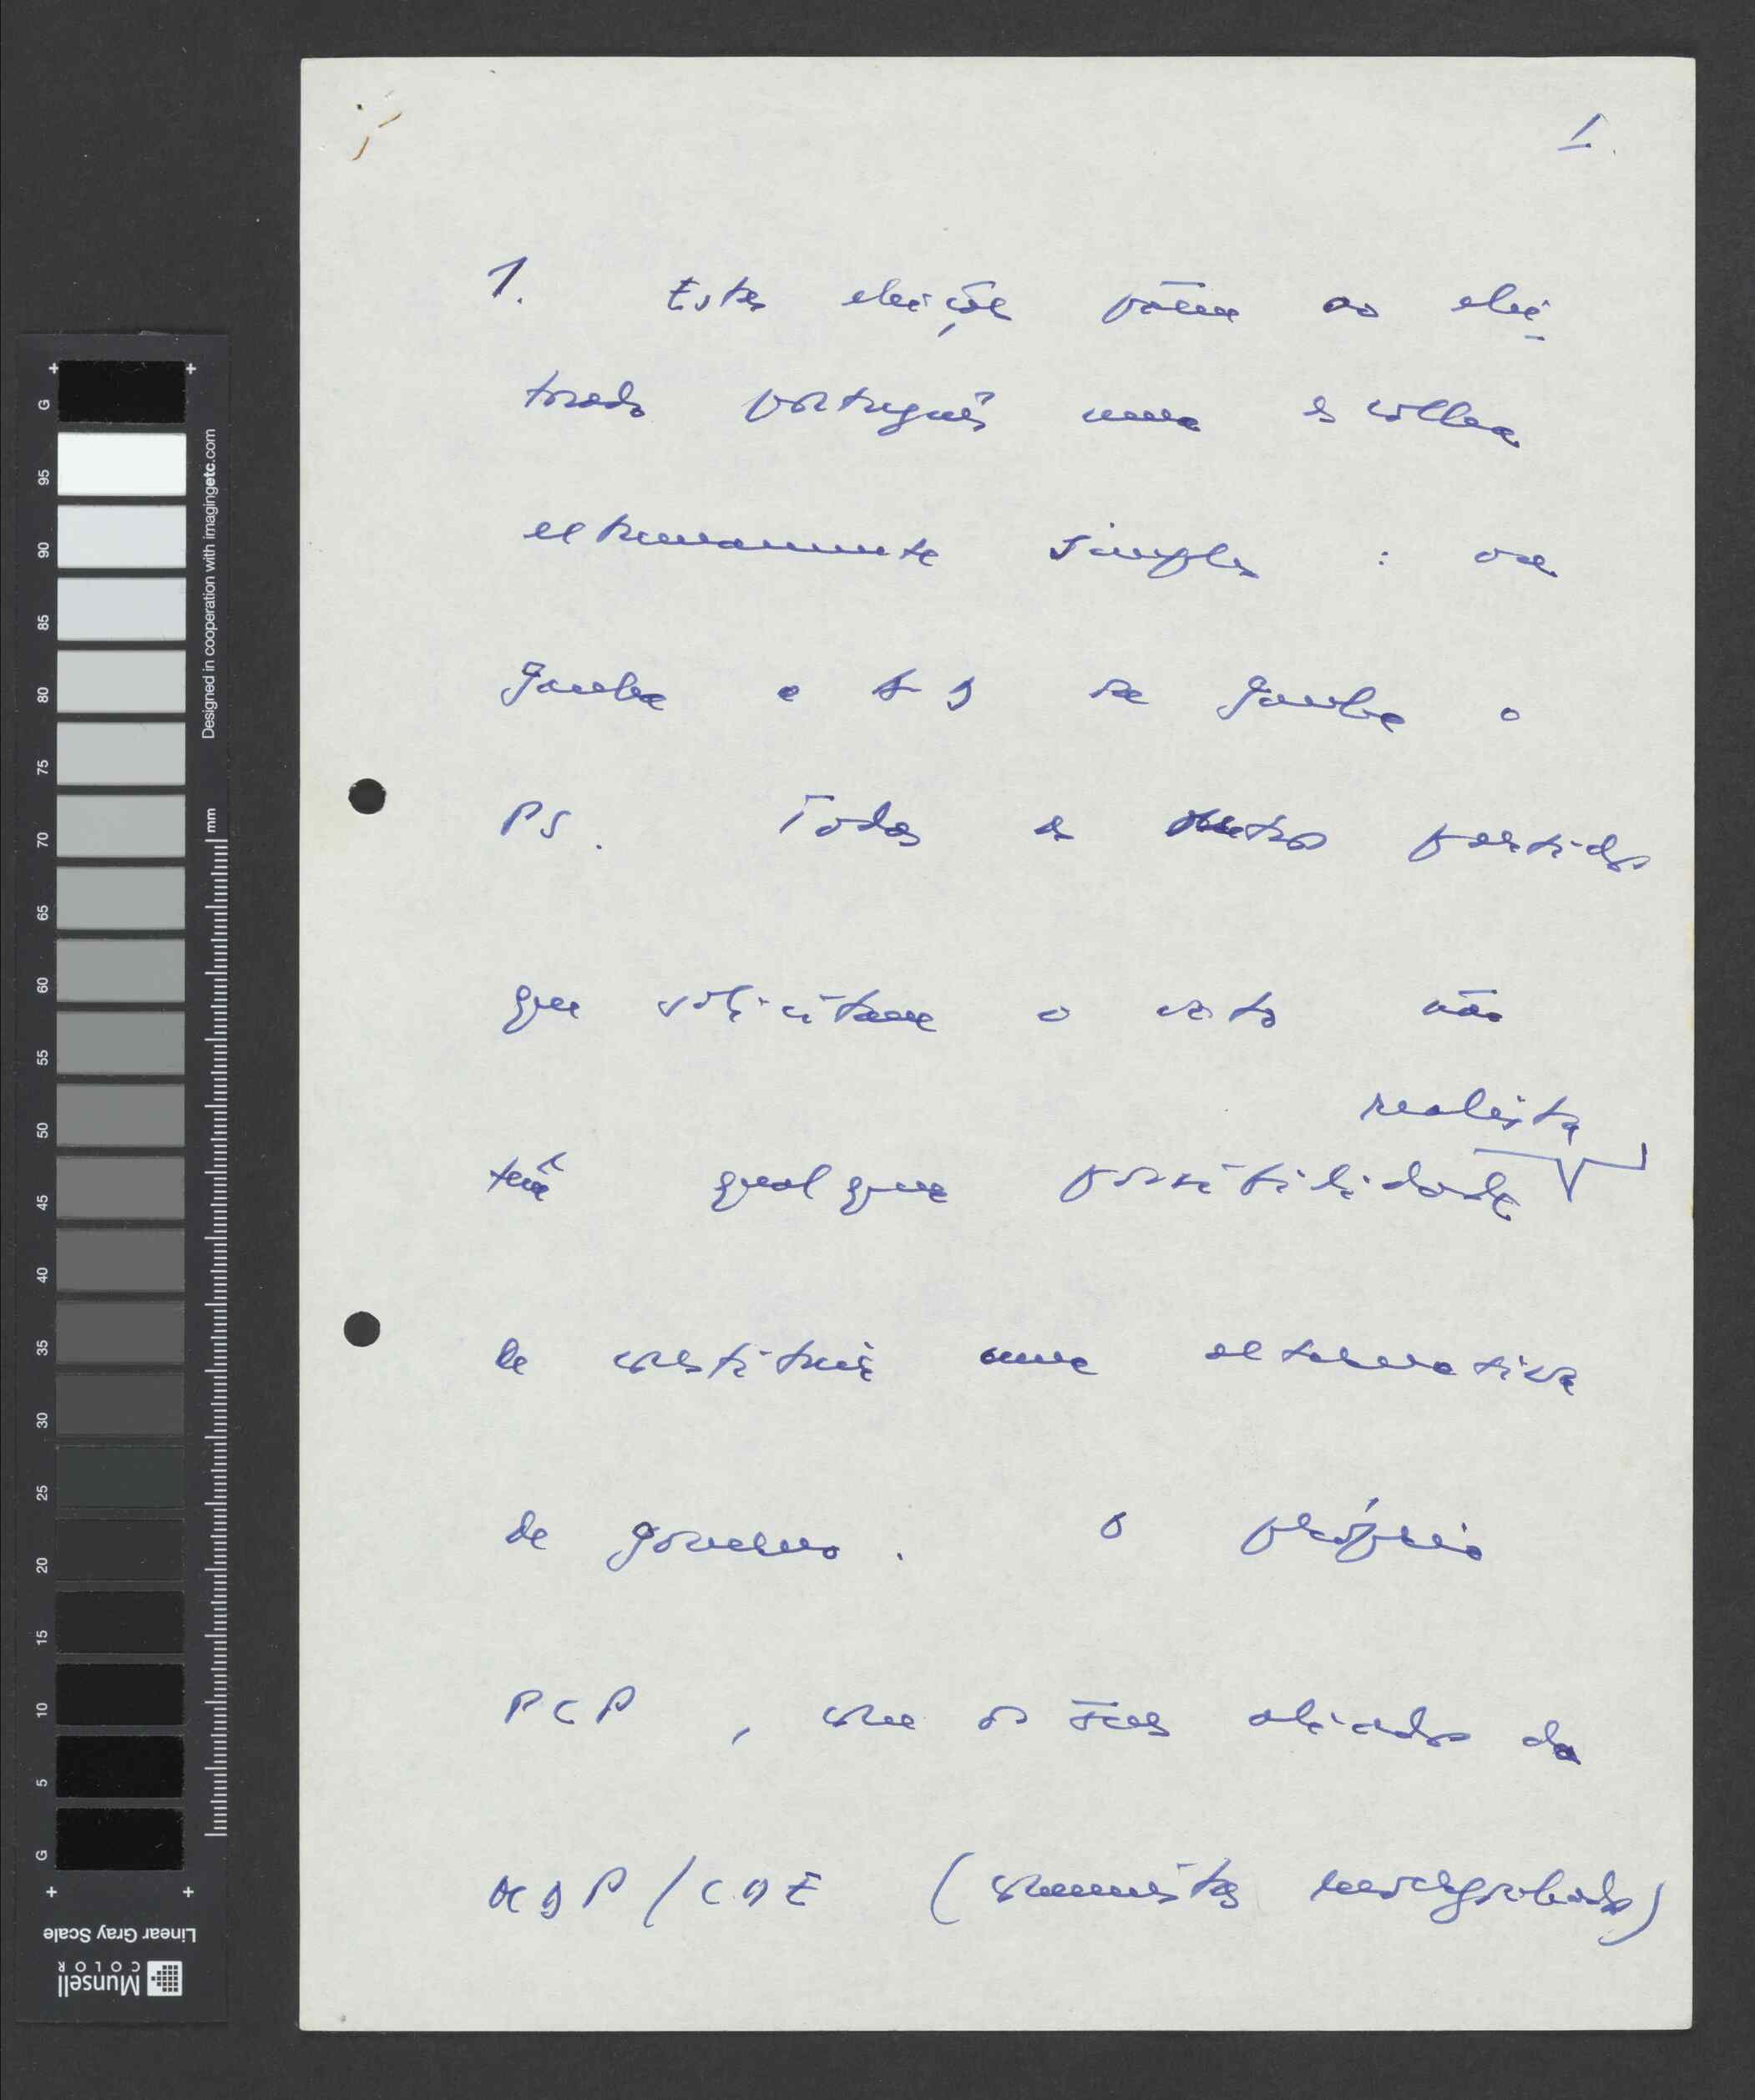 1.
1. Estas eleições põem ao elei-
torado português uma escolha
extremamente simples : ou
ganha a AD ou ganha o
PS. Todos os outros partidos
que solicitam o voto não
realista
têm qualquer possibilidade
de constituir uma alternativa
de governo. O próprio
PCP, com os seus aliados do
MDP/CDE (comunistas envergonhados)
G 95 90 85 80 75 70 65 60 55 50 45 40 35 30 25 20 15 10 5 G
mm
Designed in cooperation with imagingetc.com
Linear Gray Scale
Munsell
COLOR